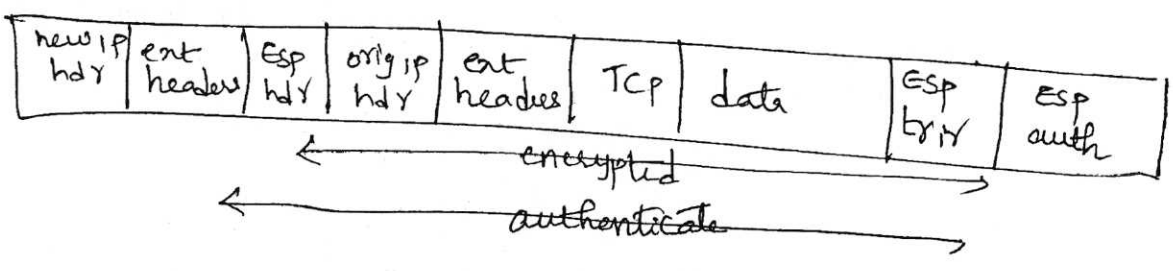 new ip
hdr
ext
headers
ESP
hdr
orig ip
hdr
ext
headers
TCP
data
ESP
trlr
ESP
auth
encrypted
authenticate